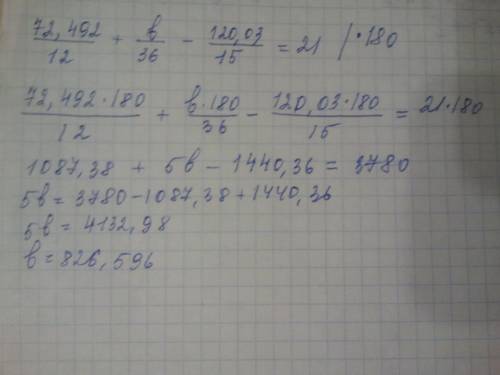 72,492/12 + b/36 − 120,03/15 = 21 /·180
72,492·180/12 + b·180/36 − 120,03·180/15 = 21·180
1087,38 + 5b − 1440,36 = 3780
5b = 3780 − 1087,38 + 1440,36
5b = 4132,98
b = 826,596